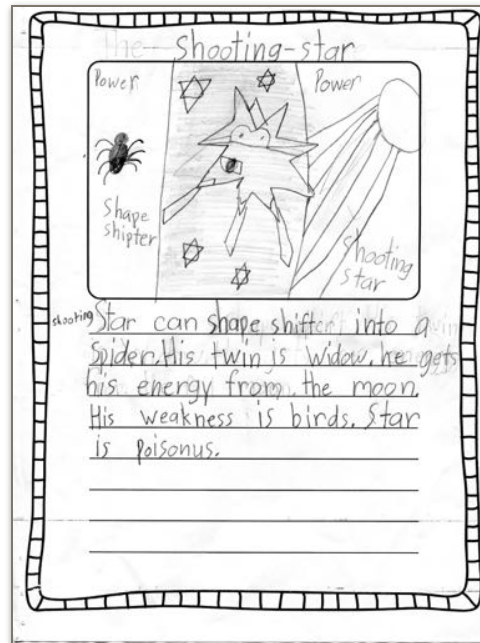 The Shooting-star
Power
Power
Shape
shipter
Shooting
star
shooting Star can shape shifter into a
Spider. His twin is widow. he gets
his energy from the moon.
His weakness is birds. Star
is poisonus.